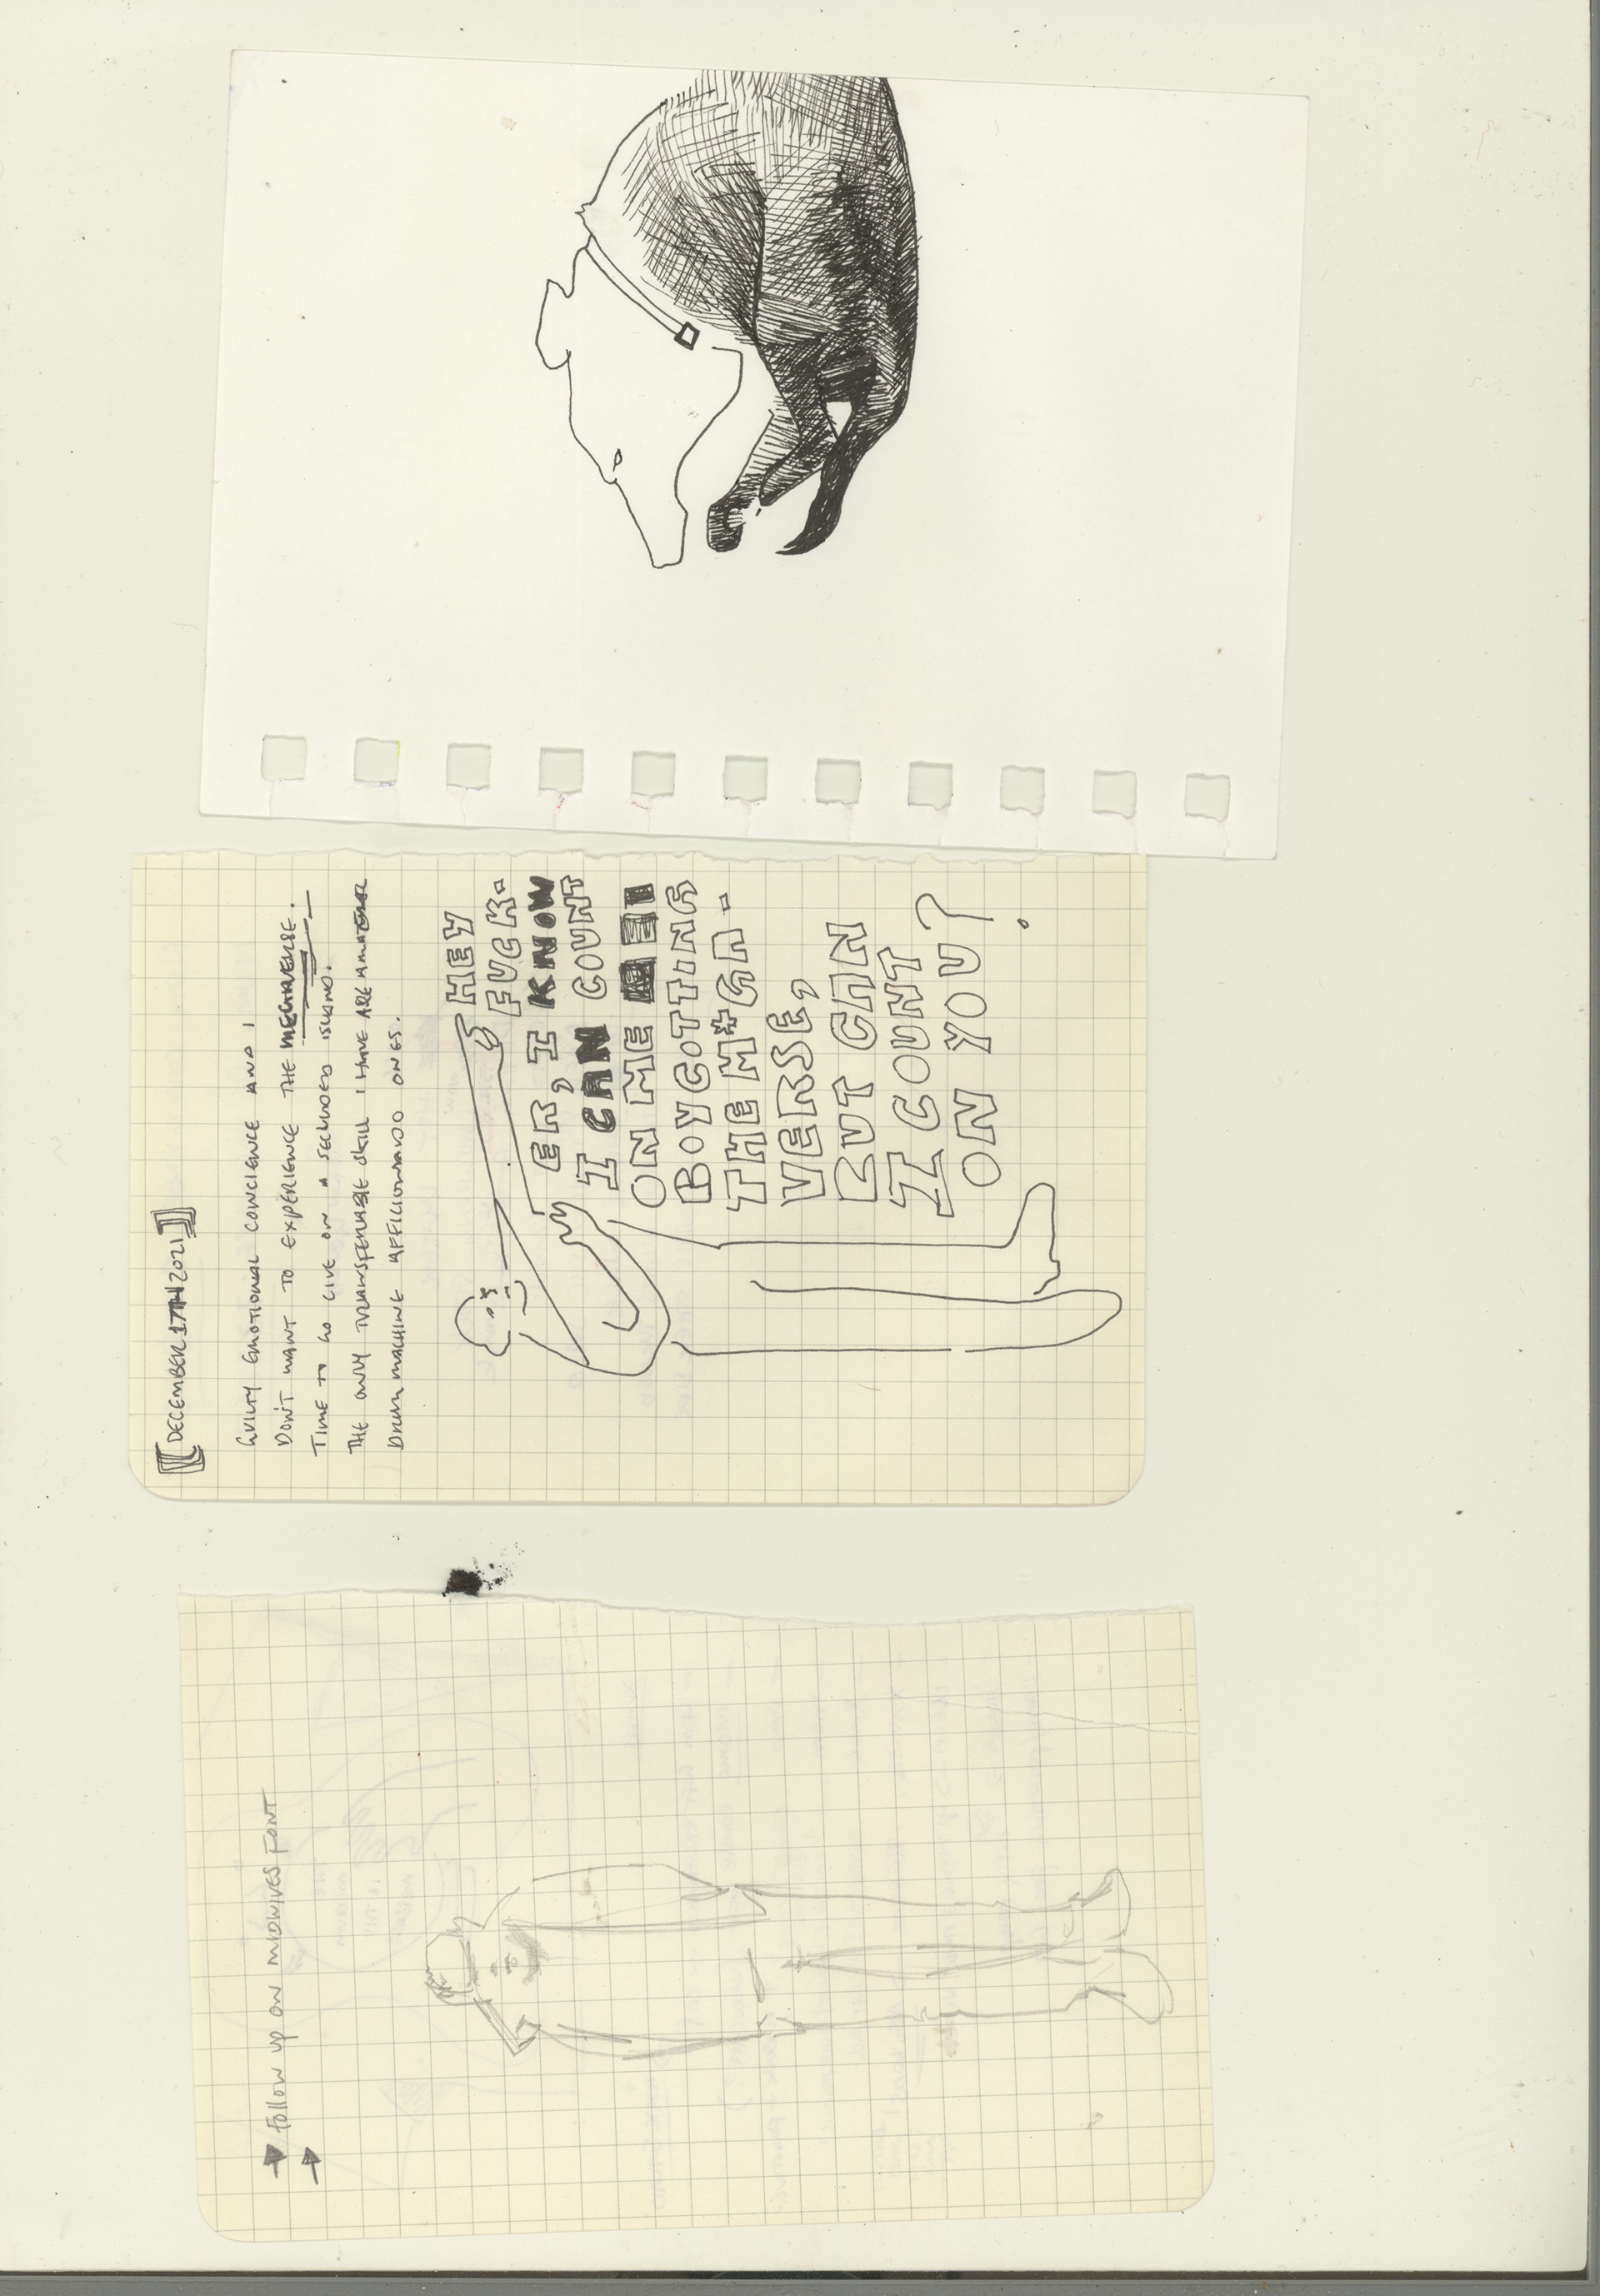 DECEMBER 17TH 2021
GUILTY EMOTIONAL CONCIENCE AND I
DON'T WANT TO EXPERIENCE THE MEGAVERSE.
TIME TO GO LIVE ON A SECLUDED ISLAND.
THE ONLY TRANSFERABLE SKILL I HAVE ARE AMATEUR
DRUM MACHINE AFFICIONADO ONES.
HEY
FUCK-
ER, I KNOW
I CAN COUNT
ON ME
BOYCOTTING
THE M*GA-
VERSE,
BUT CAN
I COUNT
ON YOU?
FOLLOW UP ON MIDWIVES FONT